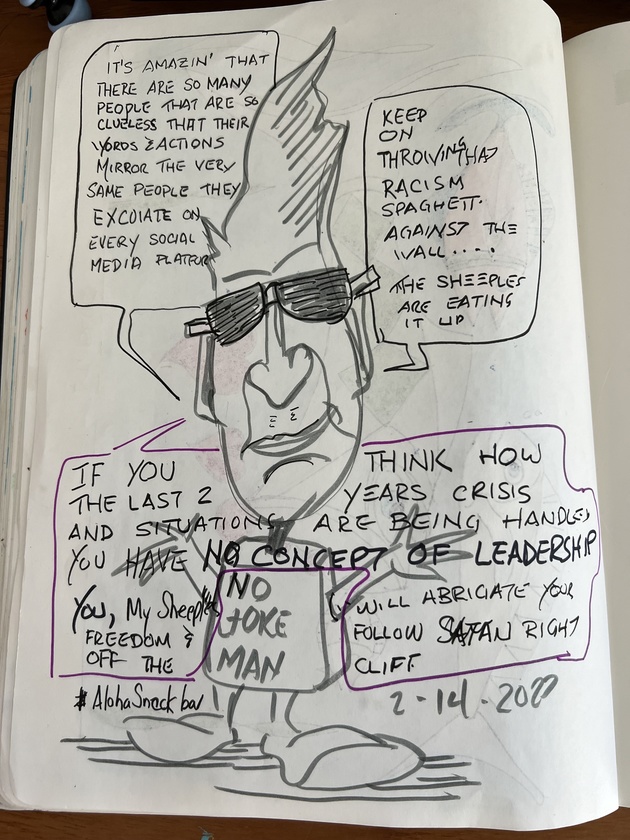 IT'S AMAZIN' THAT
THERE ARE SO MANY
PEOPLE THAT ARE SO
CLUELESS THAT THEIR
WORDS & ACTIONS
MIRROR THE VERY
SAME PEOPLE THEY
EXCOIATE ON
EVERY SOCIAL
MEDIA PLATFOR
KEEP
ON
THROWING THAT
RACISM
SPAGHETTI
AGAINST THE
WALL....
THE SHEEPLES
ARE EATING
IT UP
IF YOU THINK HOW
THE LAST 2 YEARS CRISIS
AND SITUATIONS ARE BEING HANDLED
YOU HAVE NO CONCEPT OF LEADERSHIP
YOU, My Sheeples WILL ABRIGATE YOUR
FREEDOM & FOLLOW SATAN RIGHT
OFF THE CLIFF
NO
JOKE
MAN
#AlohaSnackbar
2-14-20